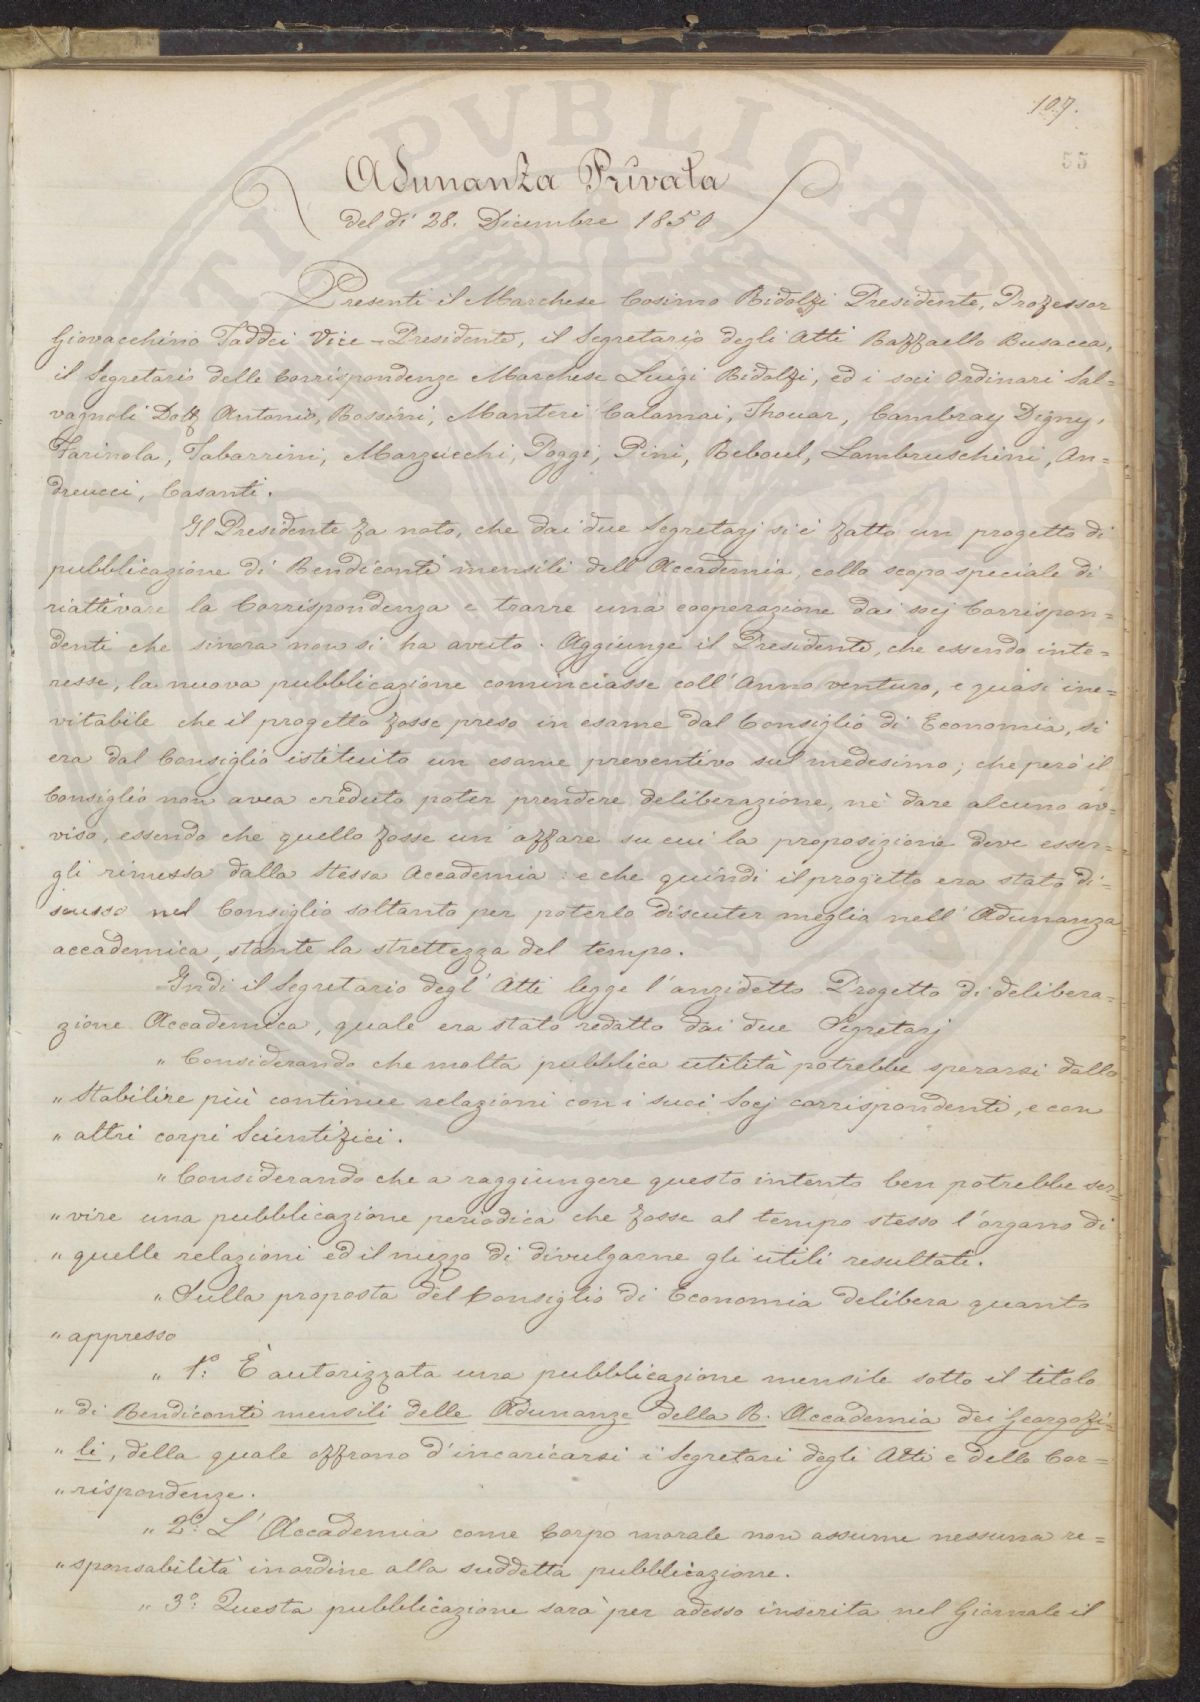 107.
55
Adunanza Privata
del dì 28. Dicembre 1850
Presenti il Marchese Cosimo Ridolfi Presidente, Professor
Giovacchino Taddei Vice-Presidente, il Segretario degli Atti Raffaello Busacca,
il Segretario delle Corrispondenze Marchese Luigi Ridolfi, ed i soci Ordinari Sal=
vagnoli Dott Antonio, Rossini, Manteri Calamai, Thouar, Cambray Digny,
Farinola, Tabarrini, Marzucchi, Poggi, Pini, Reboul, Lambruschini, An=
dreucci, Casanti.
Il Presidente fa noto, che dai due Segretarj si è fatto un progetto di
pubblicazione di Rendiconti mensili dell'Accademia, collo scopo speciale di
riattivare la Corrispondenza e trarre una cooperazione dai socj Corrispon=
denti che sinora non si ha avuto. Aggiunge il Presidente, che essendo inte=
resse, la nuova pubblicazione cominciasse coll'Anno venturo, e quasi ine=
vitabile che il progetto fosse preso in esame dal Consiglio di Economia, si
era dal Consiglio istituito un esame preventivo sul medesimo; che però il
Consiglio non avea creduto poter prendere deliberazione, nè dare alcuno av=
viso, essendo che quello fosse un affare su cui la proposizione deve esser=
gli rimessa dalla stessa Accademia: e che quindi il progetto era stato di=
scusso nel Consiglio soltanto per poterlo discuter meglio nell'Adunanza
accademica, stante la strettezza del tempo.
Indi il Segretario degl'Atti legge l'anzidetto Progetto di delibera=
zione Accademica, quale era stato redatto dai due Segretarj
" Considerando che molta pubblica utilità potrebbe sperarsi dallo
" stabilire più continue relazioni con i suoi Socj corrispondenti, e con
" altri corpi Scientifici.
" Considerando che a raggiungere questo intento ben potrebbe ser=
" vire una pubblicazione periodica che fosse al tempo stesso l'organo di
" quelle relazioni ed il mezzo di divulgarne gli utili resultati.
" Sulla proposta del Consiglio di Economia delibera quanto
" appresso
" 1.° È autorizzata una pubblicazione mensile sotto il titolo
" di Rendiconti mensili delle Adunanze della R. Accademia dei Georgofi=
" li, della quale offrono d'incaricarsi i Segretari degli Atti e delle Cor=
" rispondenze.
" 2.° L'Accademia come Corpo morale non assume nessuna re=
" sponsabilità in ordine alla suddetta pubblicazione.
" 3.° Questa pubblicazione sarà per adesso inserita nel Giornale il